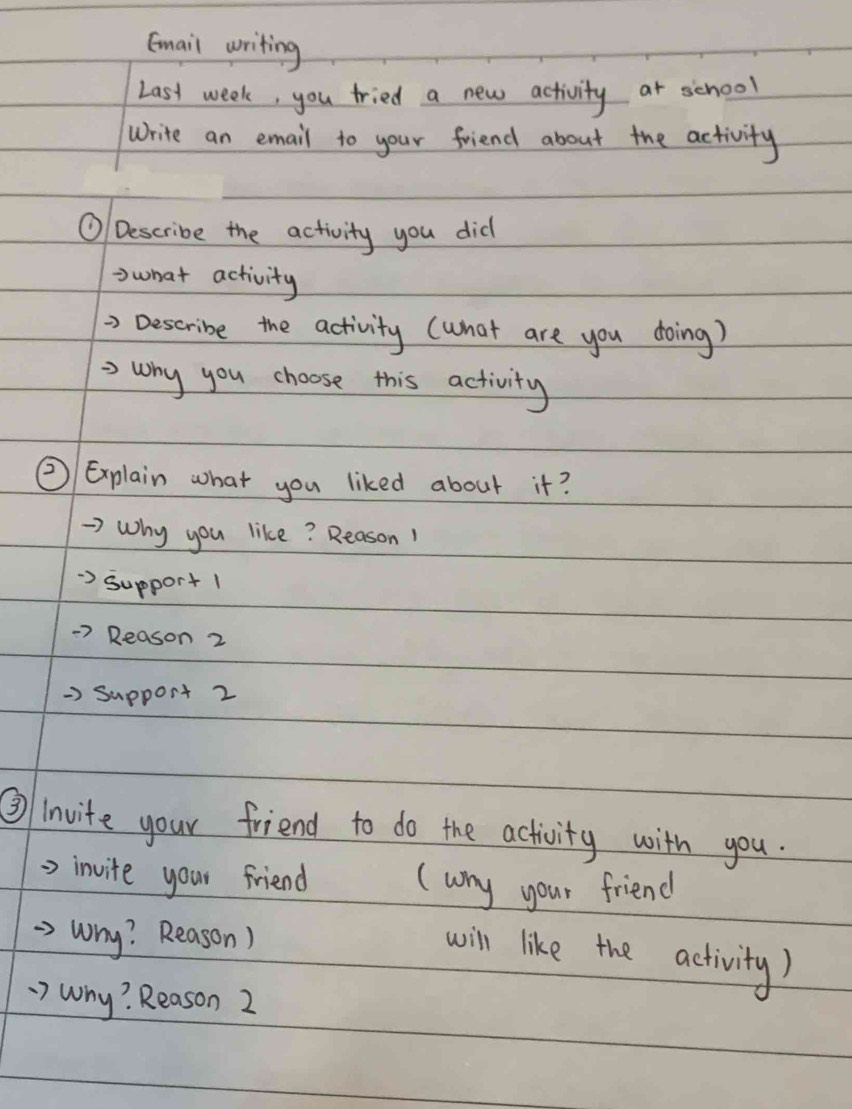 Email writing
Last week, you tried a new activity at school
Write an email to your friend about the activity
① Describe the activity you did
→ what activity
→ Describe the activity (what are you doing)
→ Why you choose this activity
② Explain what you liked about it?
→ Why you like? Reason 1
→ Support 1
→ Reason 2
→ Support 2
③ Invite your friend to do the activity with you.
→ invite your friend (why your friend
→ Why? Reason 1 will like the activity)
→ Why? Reason 2